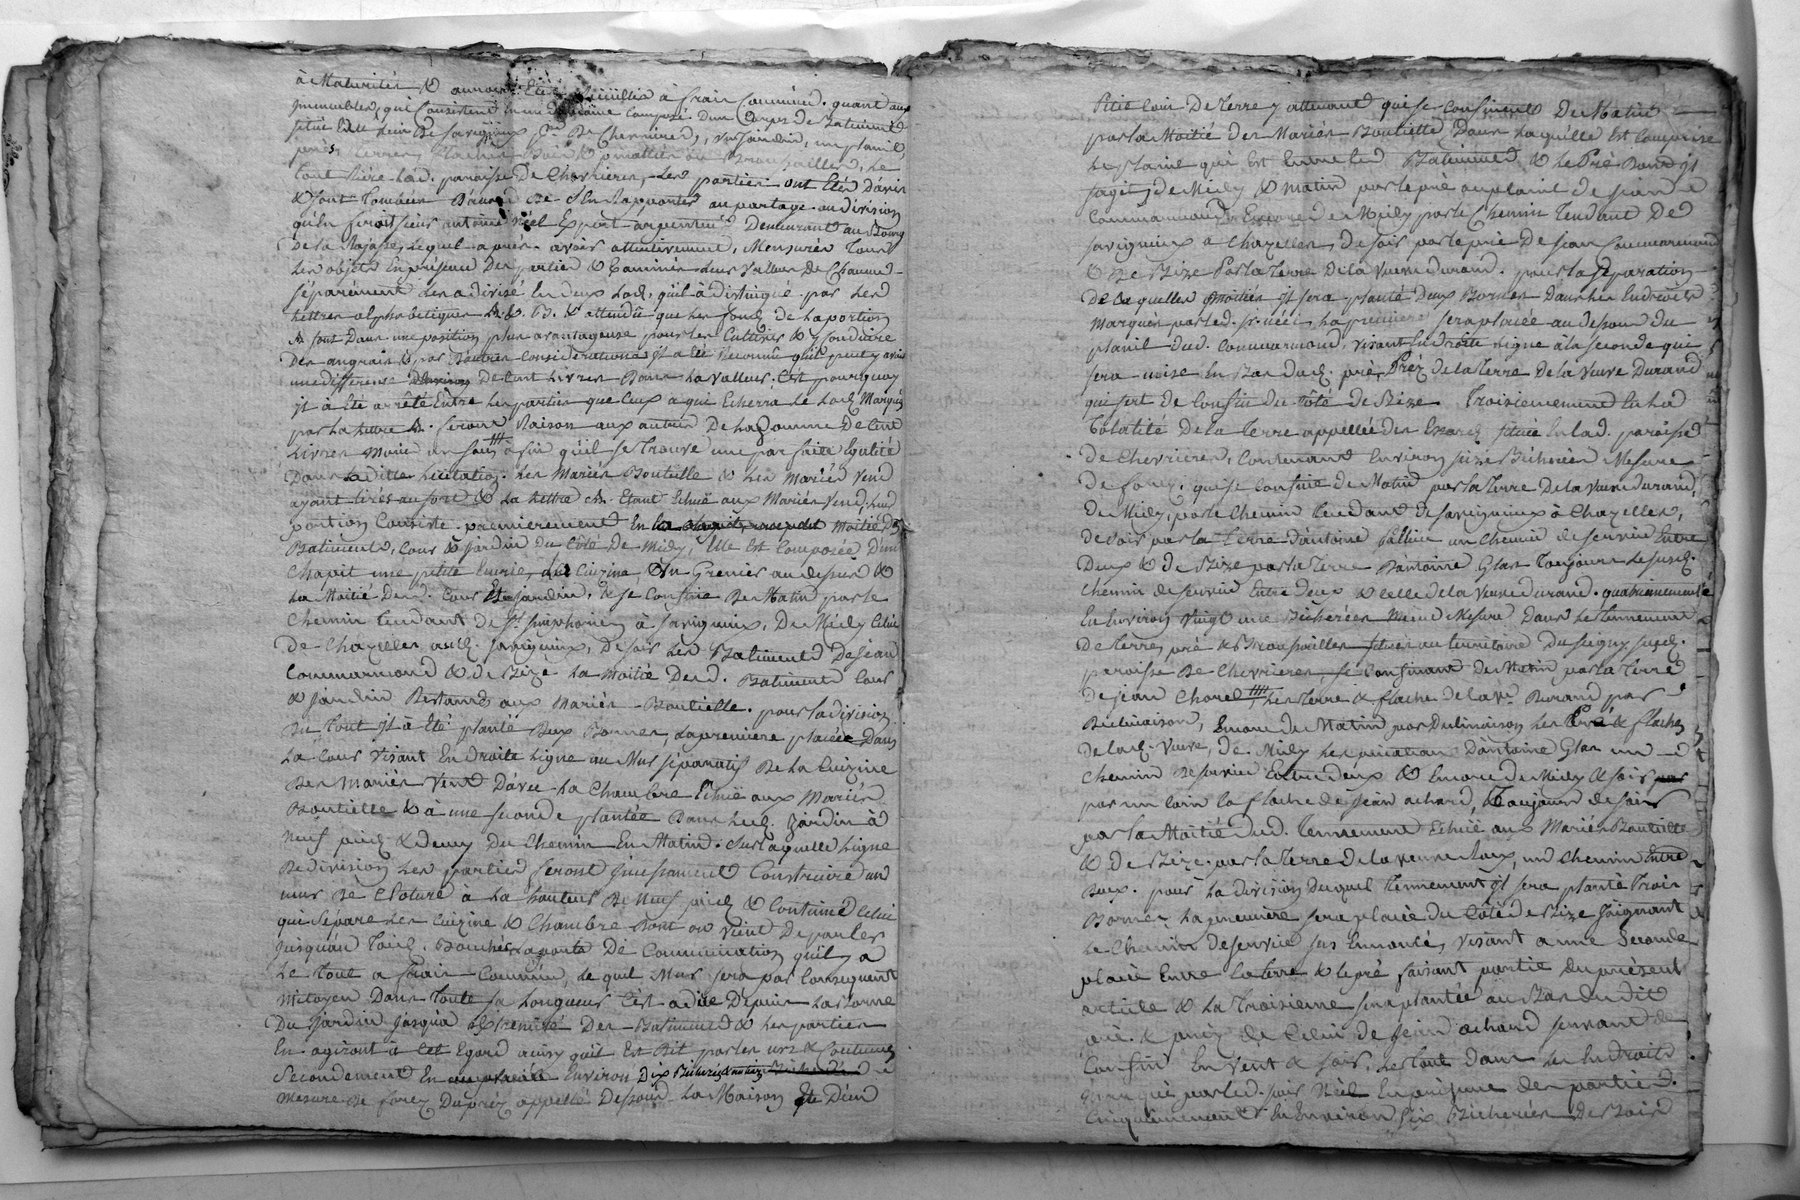 à Maturités & auront Eté Ceuillis à frais Commun. quant aux
Immeubles, qui Consistent En un Domaine Composé D'un Corps de Batiment
situé Au lieu De Savignieux psse De Chevrieres, Cour, jardin, un planil,
prés, terres, flaches, Bois & pinattée ou Broussailles, le
tout situé lad. paroisse De Chevrieres, les parties ont Etés D'avis
& sont tombées D'accord De s'En Rapporter au partage ou division
qu'En feroit sieur antoine Néel Expert arpenteur Demeurant au Bourg
de la Rajasse, lequel après avoir attentivement, Mensurés tous
les objets En présence Des parties & Examinés leurs Valleur De Chacun
séparément les a divisé En deux lots, qu'il à distingué par les
lettres alphabetiques A. & B. & attendu que les fonds de la portion
A sont Dans une position plus avantageuse pour les Cultures & y Conduire
Des angrais & par D'autres Considerations il a Eté Reconnu qu'il peut y avoir
une difference D'environ De Cent livres Dans la Valleur. C'est pourquoy
il à Eté arrêté Entre les parties que Ceux a qui Echerra le lot Marqué
par la lettre A. feront Raison aux autres De la Somme De Cent
livres Moins afin qu'il se trouve une parfaite Egalité
Dans laditte licitation. les Mariés Boutielle & les Mariés Vend
ayant tirés au sort & la lettre A. Etant Echuë aux Mariés Vend, leur
portion Consiste. premierement En la Moitié Des
Batiments, Cour & jardin Du Côté De Midy, Elle Est Composée D'un
Chapit une petite Ecurie, une Cuizine, Un Grenier au dessus &
La Moitié Desd. Cour Et jardin, & se Confine De Matin par le
Chemin tendant de St. simphorien à savignieux, De Midy Celui
De Chazelles aud. savignieux, De soir les Batiments De jean
Commarmond & de Bize la Moitié Desd. Batiments Cour
& jardin Restant aux Mariés Boutielle. pour la division
Du tout il à Eté planté Deux Bornes, la premiere placée Dans
La Cour Visant En droite ligne au Mur séparatif De la Cuizine
Des Mariés Vend D'avec la Chambre Echuë aux Mariés
Boutielle & à une seconde plantée Dans led. jardin à
neuf pieds & demy Du Chemin En Matin. sur laquelle ligne
De division les parties feront Incessament Construire un
mur De Cloture à la hauteur De Neuf pieds & Continué Celui
qui Sépare les Cuizine & Chambre Dont on vient De parler
jusqu'au toict. Boucher la porte De Communication qu'il y a
Le tout a frais Commun, le quel Mur sera par Consequent
mitoyen Dans toute sa longueur C'est a dire Depuis la Borne
Du jardin jusqu'a l'Extremité Des Batiments & les parties
En agiront à Cet Egard ainsy qu'il Est Dit par les us & Coutumes
Secondement En Environ Dix Bicherées
Mesure De forez Du prez appellé Dessous la Maison Et D'un
Petit Coin De terre y attenant qui se Confinent De Matin
par la Moitié des Mariés Boutielle Dans laquelle Est Comprise
le planil qui Est Entre les Batiment & le Pré Dont il
s'agit, de Midy & matin par le pré ou planil de jean
Commarmond, Encore de Midy par le Chemin tendant De
savignieux a Chazelles, de soir par le pré De jean Commarmond
& De Bize Par la terre De la Veuve durand. pour la séparation
De la quelles Moitiés il sera planté Deux Bornes Dans les Endroits
Marqués par led. sr. néel, la premiere sera placée au dessous du
planil dud. Commarmond, visant En droite ligne à la seconde qui
sera mise En Bas dud. pré, Près de la terre De la Veuve Durand
qui sert de Confin du Coté de Bize Troisiemement En la
totalité De la terre appellée des Essards située En lad. paroisse
De Chevrieres, Contenant Environ seize Bicherées Mesure
De forez. qui se Confine de Matin par la terre De la Veuve durand,
de Midy, par le Chemin tendant de savignieux à Chazelles,
de soir par la terre D'antoine un Chemin de service Entre
Deux & de Bize par la terre D'antoine Glas toujours le susd.
Chemin de service Entre Deux & Celle de la Veuve durand. quatriemement
En Environ Vingt une Bicherées Même Mesure Dans le tenement
De terre, pré & Broussailles situés au territoire Du seigny susd.
paroisse De Chevrieres, se Confinant De Matin par la terre
De jean Chorel, les terre & flache de la Ve. Durand par
Déclinaison, Encore de Matin par Declinaison les Pré & flache
De lad. Veuve, de Midy D'antoine Glas un
Chemin De service Entre deux & Encore de Midy & soir
par un Coin la flache de jean achard, & toujours de soir
par la Moitié dud. tennement Echuë aux Mariés Boutielle
& de Bize par la terre de la veuve Roux, un Chemin Entre
Deux. pour la division Duquel tennement il sera planté Trois
Bornes la premiere sera placée du Côté de Bize joignant
Le Chemin De service sus Enoncé, visant a une Seconde
placée Entre la terre & le pré faisant partie Du présent
article & la troisieme sera plantée au Bas du dit
pré & près de Celui de jean achard servant de
Confin En Vent & soir, le tout dans les Endroits
Marqués par led. sieur Néel En présence des parties.
Cinquiemement En Environ six Bicherées De Bois